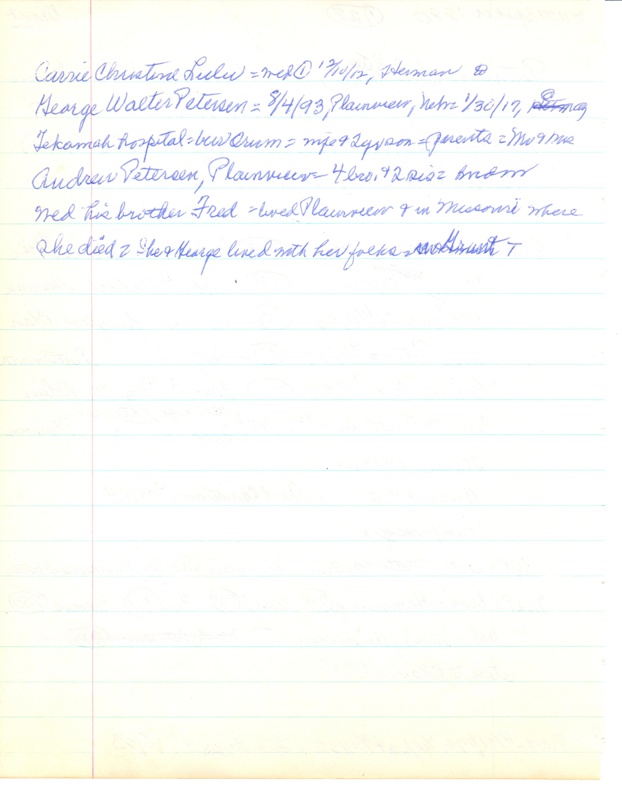 Carrie Christine Lulu = wed ① 12/10/12, Herman
George Walter Petersen = 8/4/93, Plainview, Nebr = 1/30/17,
Tekamah hospital = bur Orum = wife & 2 yr son = parents = Mr & Mrs
Andrew Petersen, Plainview = 4 bro. & 2 sis =
wed his brother Fred = lived Plainview & in Missouri where
she died = She & George lived with her folks =